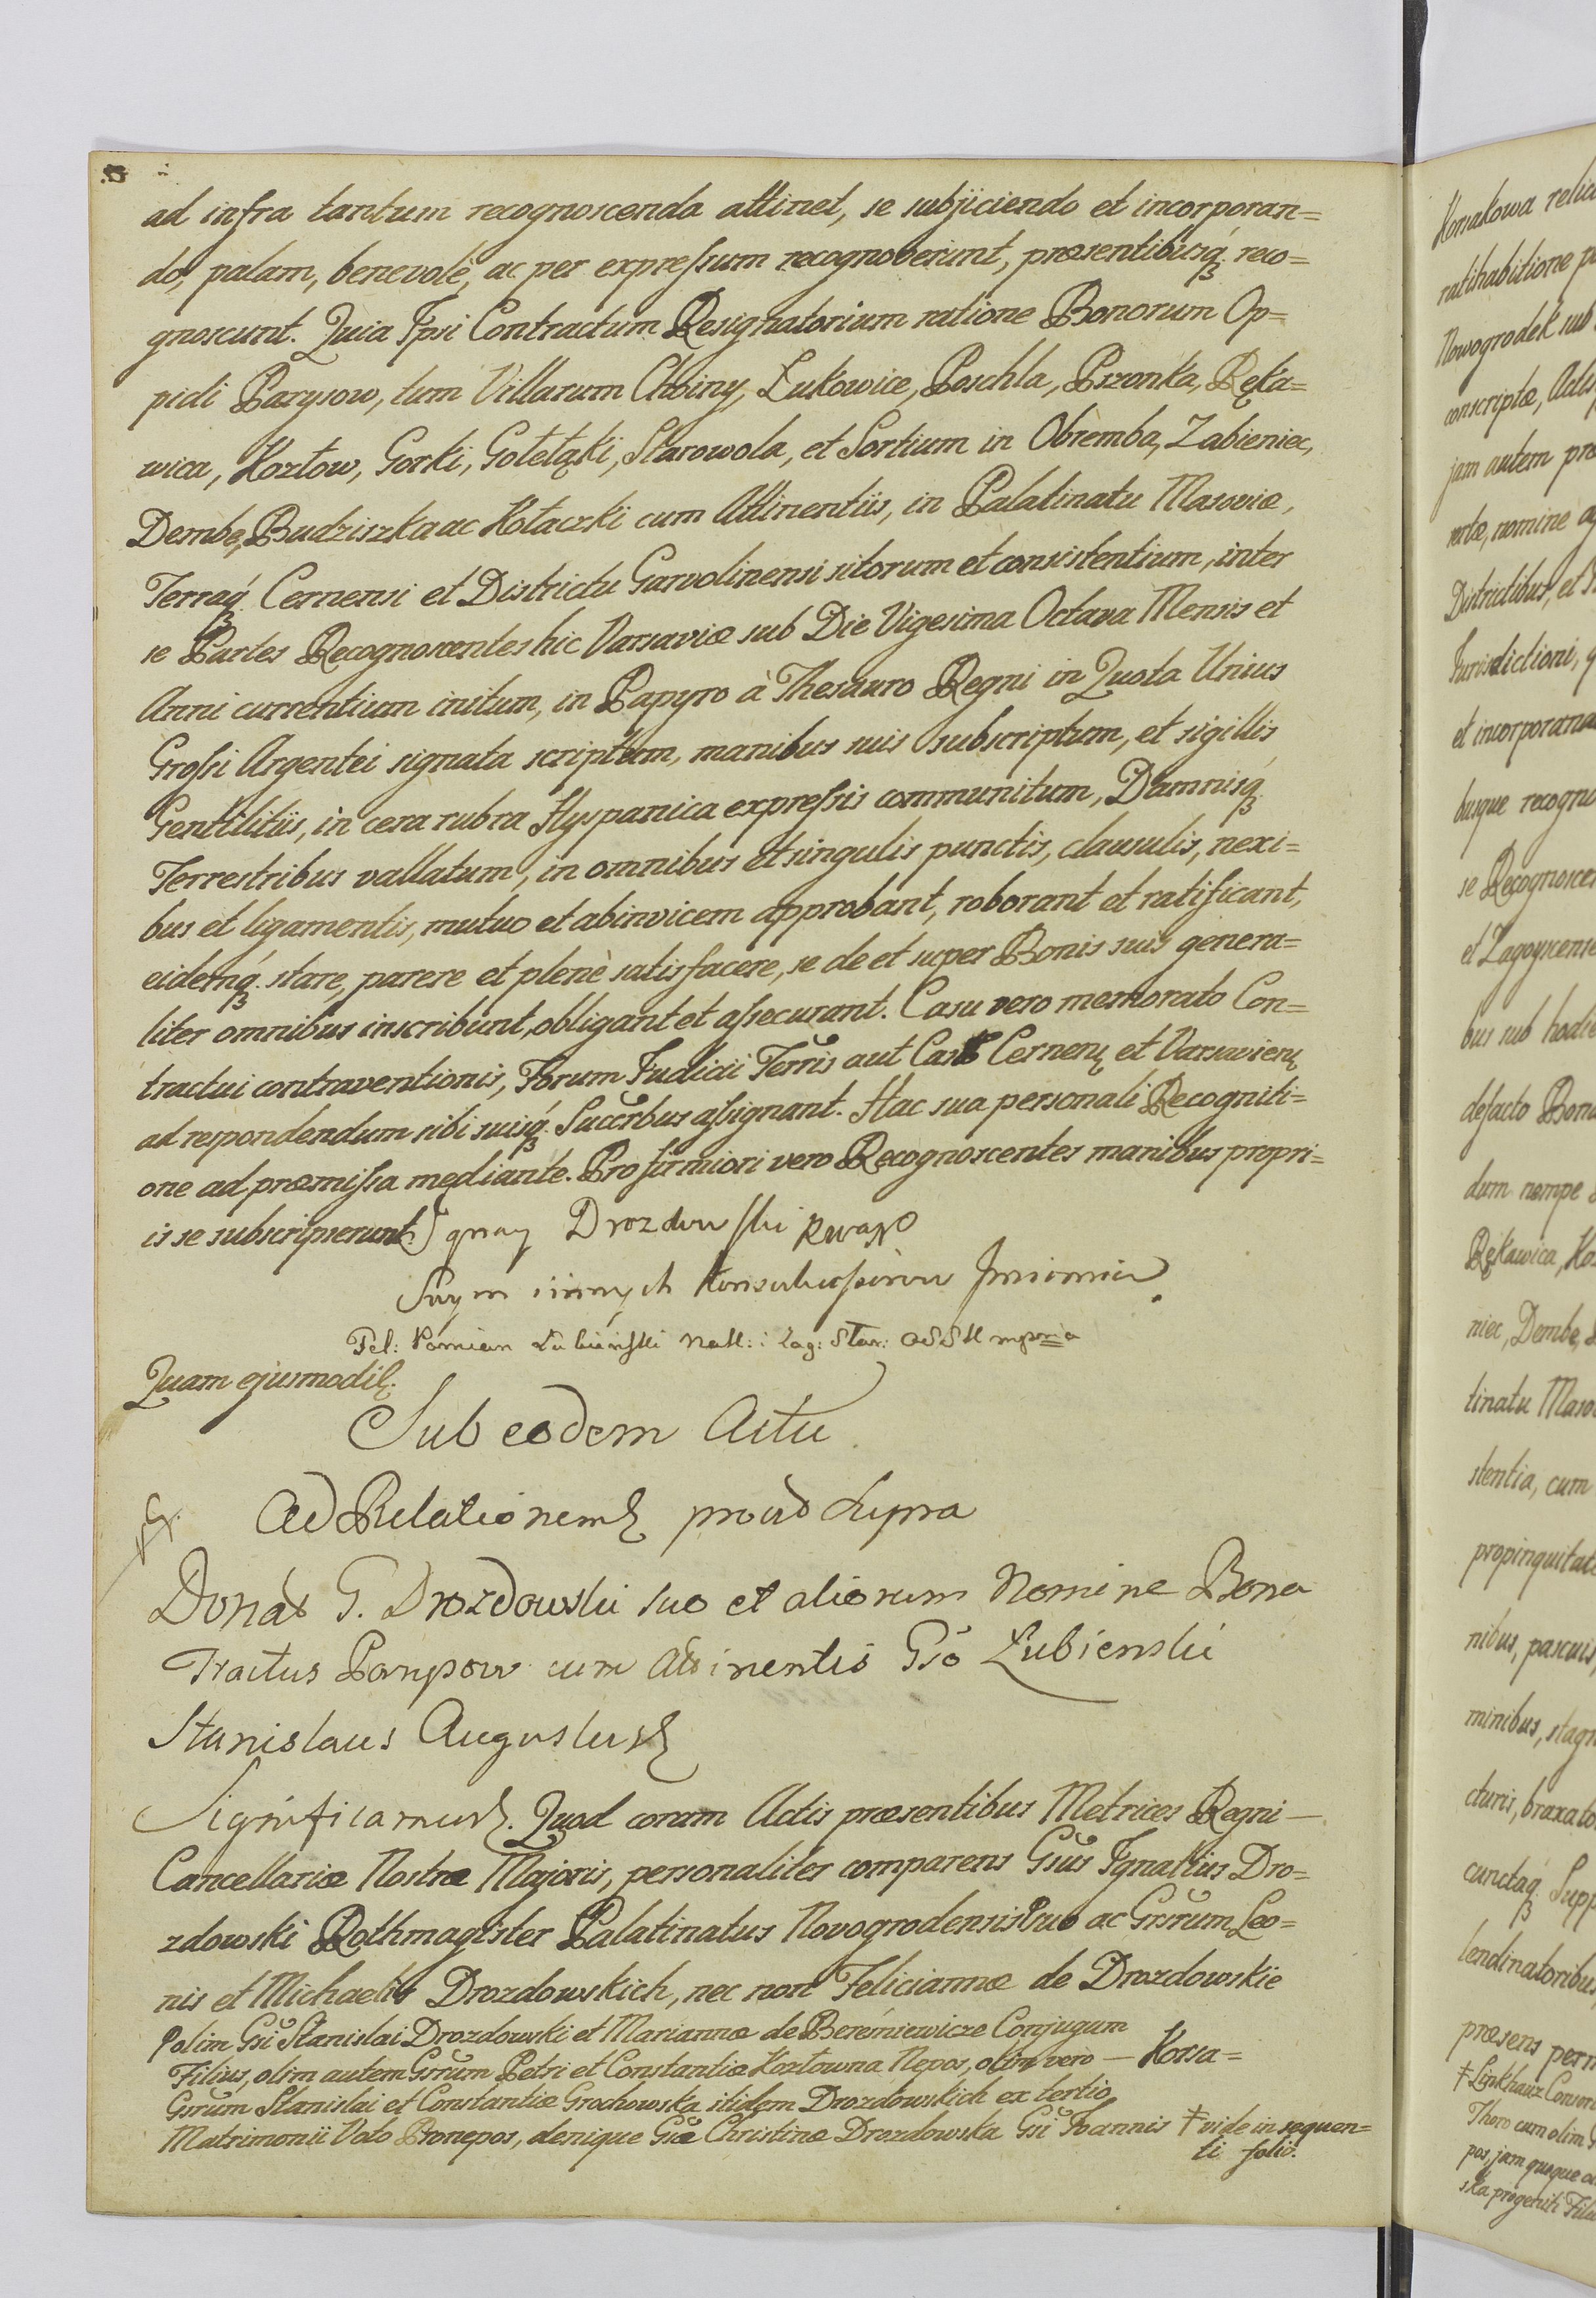 ad infra tantum recognoscenda attinet, se subjiciendo et incorporan=
do, palam, benevolè, ac per expreſsum recognoverunt, præsentibusq́ȝ reco=
gnoscunt. Quia Ipsi Contractum Resignatorium ratione Bonorum Op=
pidi Parysow, tum Villarum Choiny, Łukowice, Poschla, Pszonka, Ręka=
wica, Kozłow, Gorki, Gołełąki, Starowola, et Sortium in Obremba, Zabieniec,
Dembe, Budziszka ac Kołaczki cum Attinentiis, in Palatinatu Masoviæ,
Terraq́ȝ Cernensi et Districtu Garvolinensi sitorum et consistentium, inter
se Partes Recognoscentes hic Varsaviæ sub Die Vigesima Octava Mensis et
Anni currentium initum, in Papyro à Thesauro Regni in Quota Unius
Groſsi Argentei signata scriptum, manibus suis subscriptum, et sigillis
Gentilitiis, in cera rubra Hyspanica expreſsis communitum, Damnisq́ȝ
Terrestribus vallatum, in omnibus et singulis punctis, clausulis, nexi=
bus et ligamentis, mutuo et abinvicem approbant, roborant et ratificant,
eidemq́ȝ stare, parere et plenè satisfacere, se de et super Bonis suis genera=
liter omnibus inscribunt, obligant et aſsecurant. Casu vero memorato Con=
tractui contraventionis, Forum Judicii Terris aut Cast Cernen. et Varsavien.
ad respondendum sibi suisq́ȝ Succrbus aſsignant. Hac sua personali Recogniti=
one ad præmiſsa mediante. Pro firmiori vero Recognoscentes manibus propri=
is se subscripserunt. Ignacy Drozdowſki
Swym innych Imieniem
Fel: Pomian Łubieńſki
Quam ejusmodi
Sub eodem Actu
Ad Relationem prout Supra
Donat G. Drozdowski suo et aliorum Nomine Bona
Tractus Parysow cum Attinentis Gso Łubienski
Stanislaus Augustus
Significamus. Quod coram Actis præsentibus Metrices Regni —
Cancellariæ Nostræ Majoris, personaliter comparens Gsus Ignatius Dro=
zdowski Rothmagister Palatinatus Novogrodensis suo ac Gsrum Leo=
nis et Michaelis Drozdowskich, nec non Feliciannæ de Drozdowskie
olim Gsi Stanislai Drozdowski et Mariannæ de Beremiewicze Conjugum
Filius, olim autem Gsrum Petri et Constantiæ Kozłowna Nepos, olim vero — Korsa=
Gsrum Stanislai et Constantiæ Grochowska itidem Drozdowskich ex tertio
Matrimonii Voto Pronepos, denique Gsæ Christinæ Drozdowska Gsi Joannis ‡ vide in sequen=
ti folio.
Korsakowa
ratihabitione
Nowogrodek sub
conscriptæ,
jam autem
nomine
Districtibus, et
Jurisdictioni,
et incorporand
busque recogno
se Recognoscen
et Zagoynense
bus sub hodie
defacto Bono
dum nempe
Rękawica,
niec, Dembe,
tinatu Masov
stentia, cum
propinquitat
nibus, pascuis,
minibus, stagn
cturis, braxato
cunctaq́ȝ Supp
lendinatoribus
præsens
‡ Linkhauz Consor
Thoro cum olim
pos, jam quoque
ska progeniti Filiu